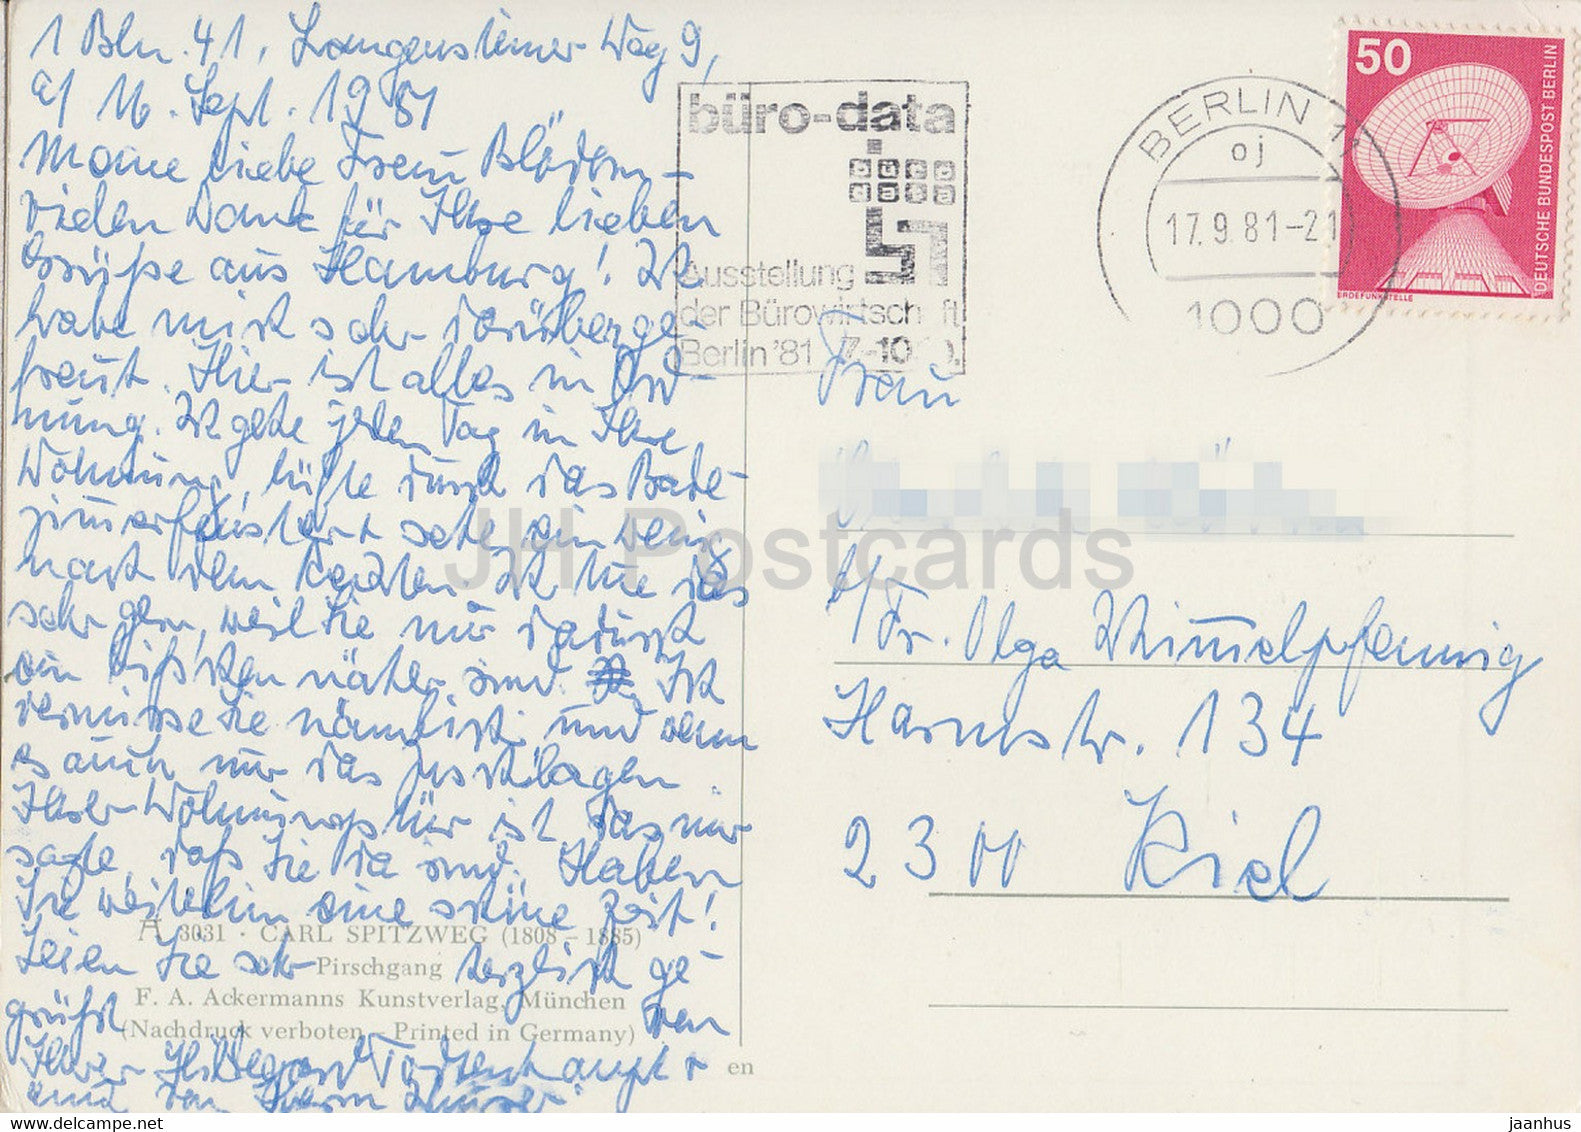 1 Bln. 41, Langensteiner Weg 9,
16. Sept. 1981
Meine liebe Frau
vielen Dank für Ihre lieben
Grüße aus Hamburg! Ich
habe mich sehr darüber ge-
freut. Hier ist alles in Ord-
nung. Ich gehe jeden Tag in Ihre
Wohnung, lüfte durch das Bade-
zimmerfenster + sehe ein wenig
nach dem Rechten. Ich tue das
sehr gern, weil Sie mir dadurch
ein bißchen näher sind. Ich
vermisse Sie nämlich und wenn
es auch nur das
Ihrer Wohnungstür ist, das mir
sagte, daß Sie da sind. Haben
Sie weiterhin eine schöne Zeit!
Seien Sie sehr herzlich ge-
grüßt von
Ihrer Hildegard
und von
A 3031 · CARL SPITZWEG (1808 – 1885)
Pirschgang
F. A. Ackermanns Kunstverlag, München
(Nachdruck verboten – Printed in Germany)
en
büro-data
büro
data
Ausstellung
der Bürowirtschaft
Berlin '81 7.-10.
BERLIN 11
oj
17.9.81-21
1000
50
DEUTSCHE BUNDESPOST BERLIN
ERDEFUNKSTELLE
Frau
c/ Fr. Olga Wimmelpfennig
Harmsstr. 134
2300 Kiel
JH Postcards
https://www.delcampe.net/en_US/collectibles/store/jaanhus